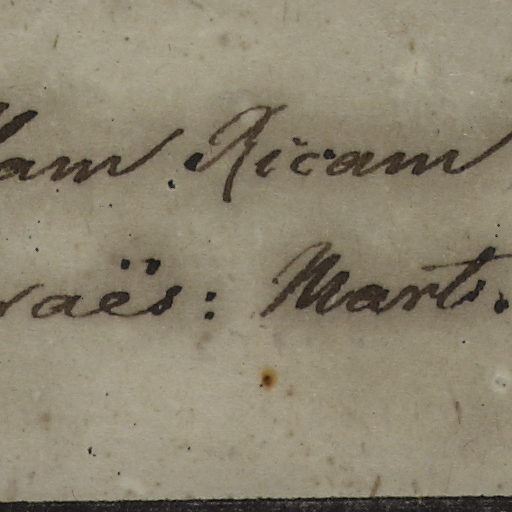 am Ricam
raës: Marts.